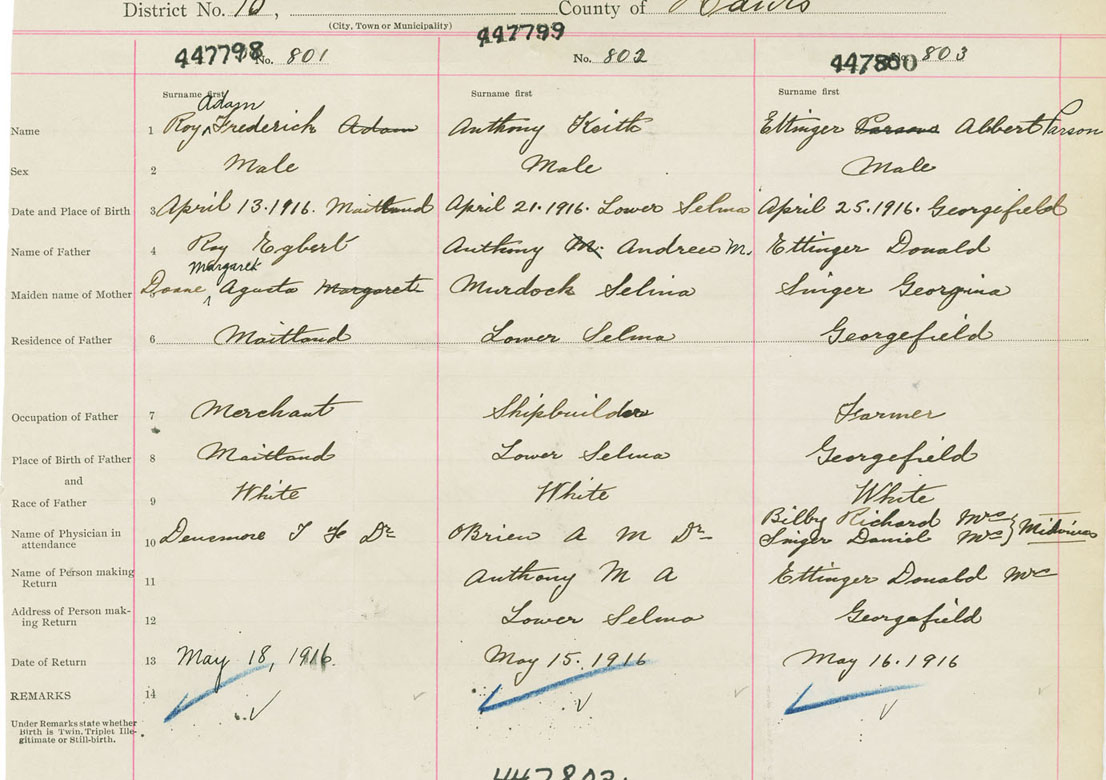 District No. 10, County of Hants
(City, Town or Municipality)
447798 No. 801 447799 No. 802 447800 No. 803
Surname first Surname first Surname first
Adam
Name 1 Roy ^ Frederick Adam Anthony Keith Ettinger Parsons Albert Parson
Sex 2 Male Male Male
Date and Place of Birth 3 April 13.1916. Maitland April 21.1916. Lower Selma April 25.1916. Georgefield
Name of Father 4 Roy Egbert Anthony M. Andrew M. Ettinger Donald
Margaret
Maiden name of Mother 5 Doane ^ Agusta Margaret Murdock Selina Singer Georgina
Residence of Father 6 Maitland Lower Selma Georgefield
Occupation of Father 7 Merchant Shipbuilder Farmer
Place of Birth of Father 8 Maitland Lower Selma Georgefield
and
Race of Father 9 White White White
Name of Physician in attendance 10 Densmore J Dr OBrien A M Dr Bilby Richard Mrs } Midwives
Singer Daniel Mrs
Name of Person making Return 11 Anthony M A Ettinger Donald Mrs
Address of Person making Return 12 Lower Selma Georgefield
Date of Return 13 May 18, 1916. May 15. 1916 May 16. 1916
REMARKS 14
Under Remarks state whether
Birth is Twin, Triplet Ille-
gitimate or Still-birth.
447802.